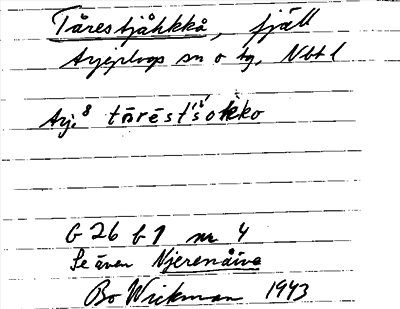 Tårestjåhkkå, fjäll
Arjeplogs sn o tg, Nbtl
Arj.8 tārēst'š'o͕kko
G 26 b 1 nr 4
Se även Njerenåive
Bo Wickman 1943